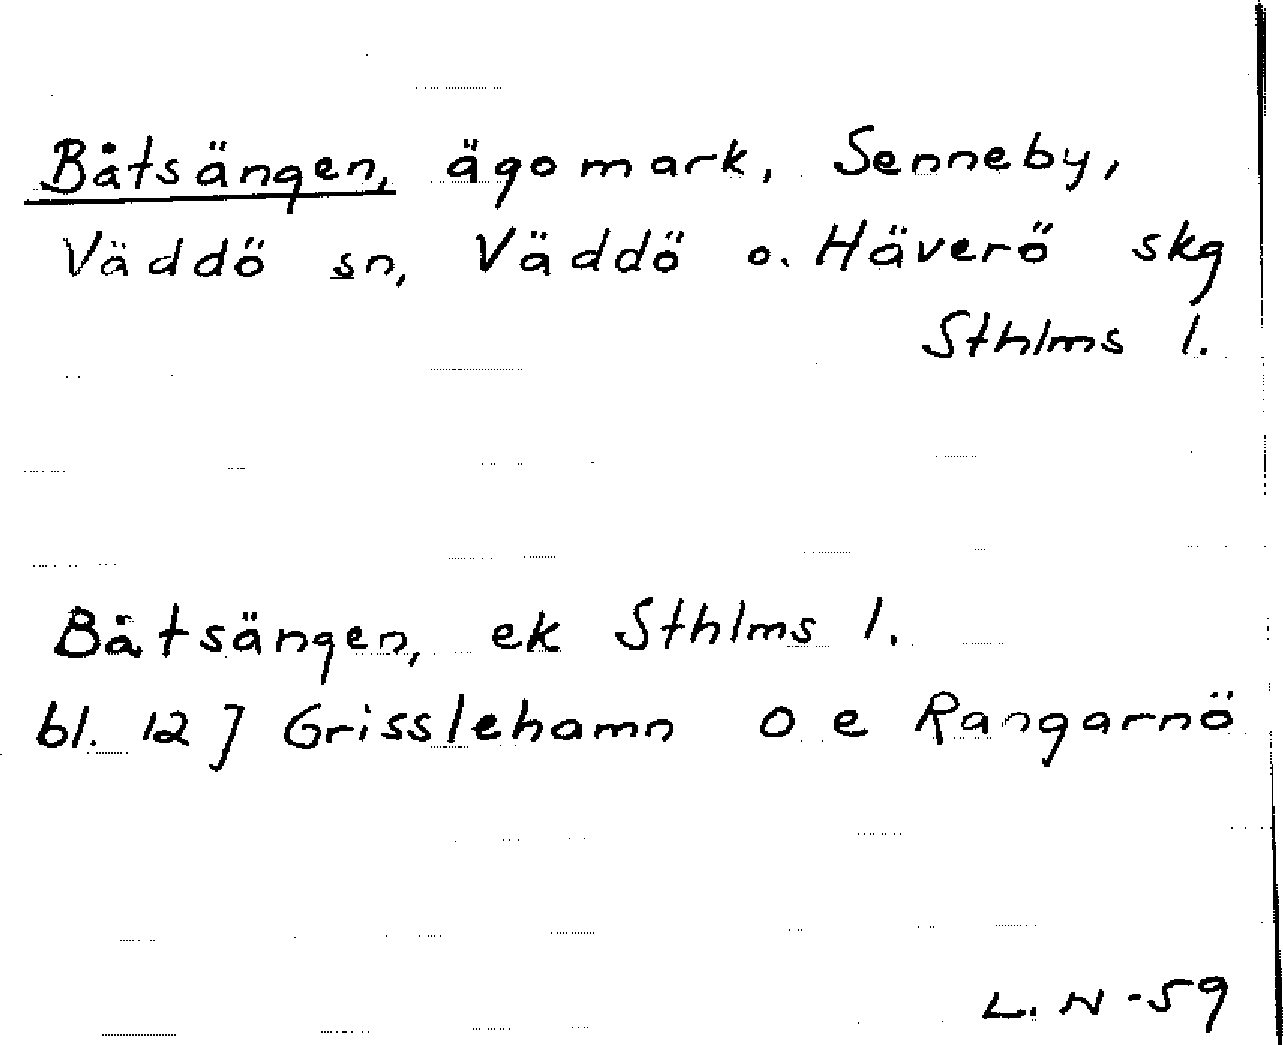 Båtsängen, ägomark, Senneby,
Väddö sn, Väddö o. Häverö skg
Sthlms l.
Båtsängen, ek Sthlms l.
bl. 12 J Grisslehamn o e Rangarnö
L. N -59